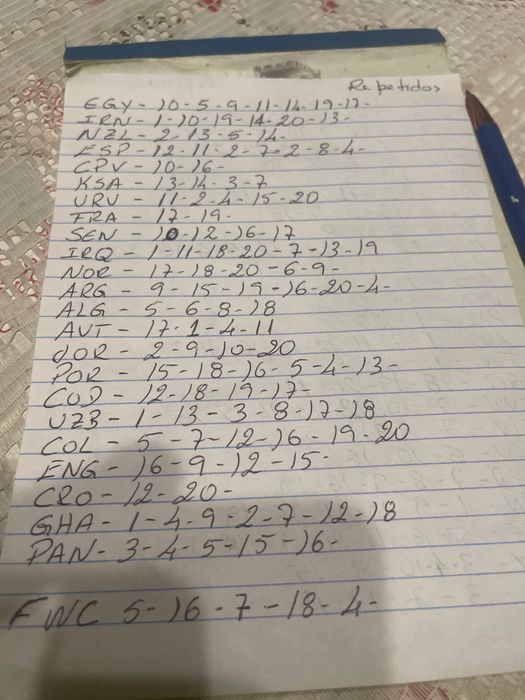 Repetidos
EGY - 10 - 5 - 9 - 11 - 14 - 19 - 17 -
IRN - 1 - 10 - 19 - 14 - 20 - 13 -
NZL - 2 - 13 - 5 - 14 -
ESP - 12 - 11 - 2 - 7 - 2 - 8 - 4 -
CPV - 10 - 16 -
KSA - 13 - 14 - 3 - 7
URV - 11 - 2 - 4 - 15 - 20
FRA - 17 - 19 -
SEN - 10 - 12 - 16 - 17
IRQ - 1 - 11 - 18 - 20 - 7 - 13 - 19
NOR - 17 - 18 - 20 - 6 - 9 -
ARG - 9 - 15 - 19 - 16 - 20 - 4 -
ALG - 5 - 6 - 8 - 18
AUT - 17 - 1 - 4 - 11
JOR - 2 - 9 - 10 - 20
POR - 15 - 18 - 16 - 5 - 4 - 13 -
COD - 12 - 18 - 19 - 17 -
UZB - 1 - 13 - 3 - 8 - 17 - 18
COL - 5 - 7 - 12 - 16 - 19 - 20
ENG - 16 - 9 - 12 - 15 -
CRO - 12 - 20 -
GHA - 1 - 4 - 9 - 2 - 7 - 12 - 18
PAN - 3 - 4 - 5 - 15 - 16 -
FWC 5 - 16 - 7 - 18 - 4 -